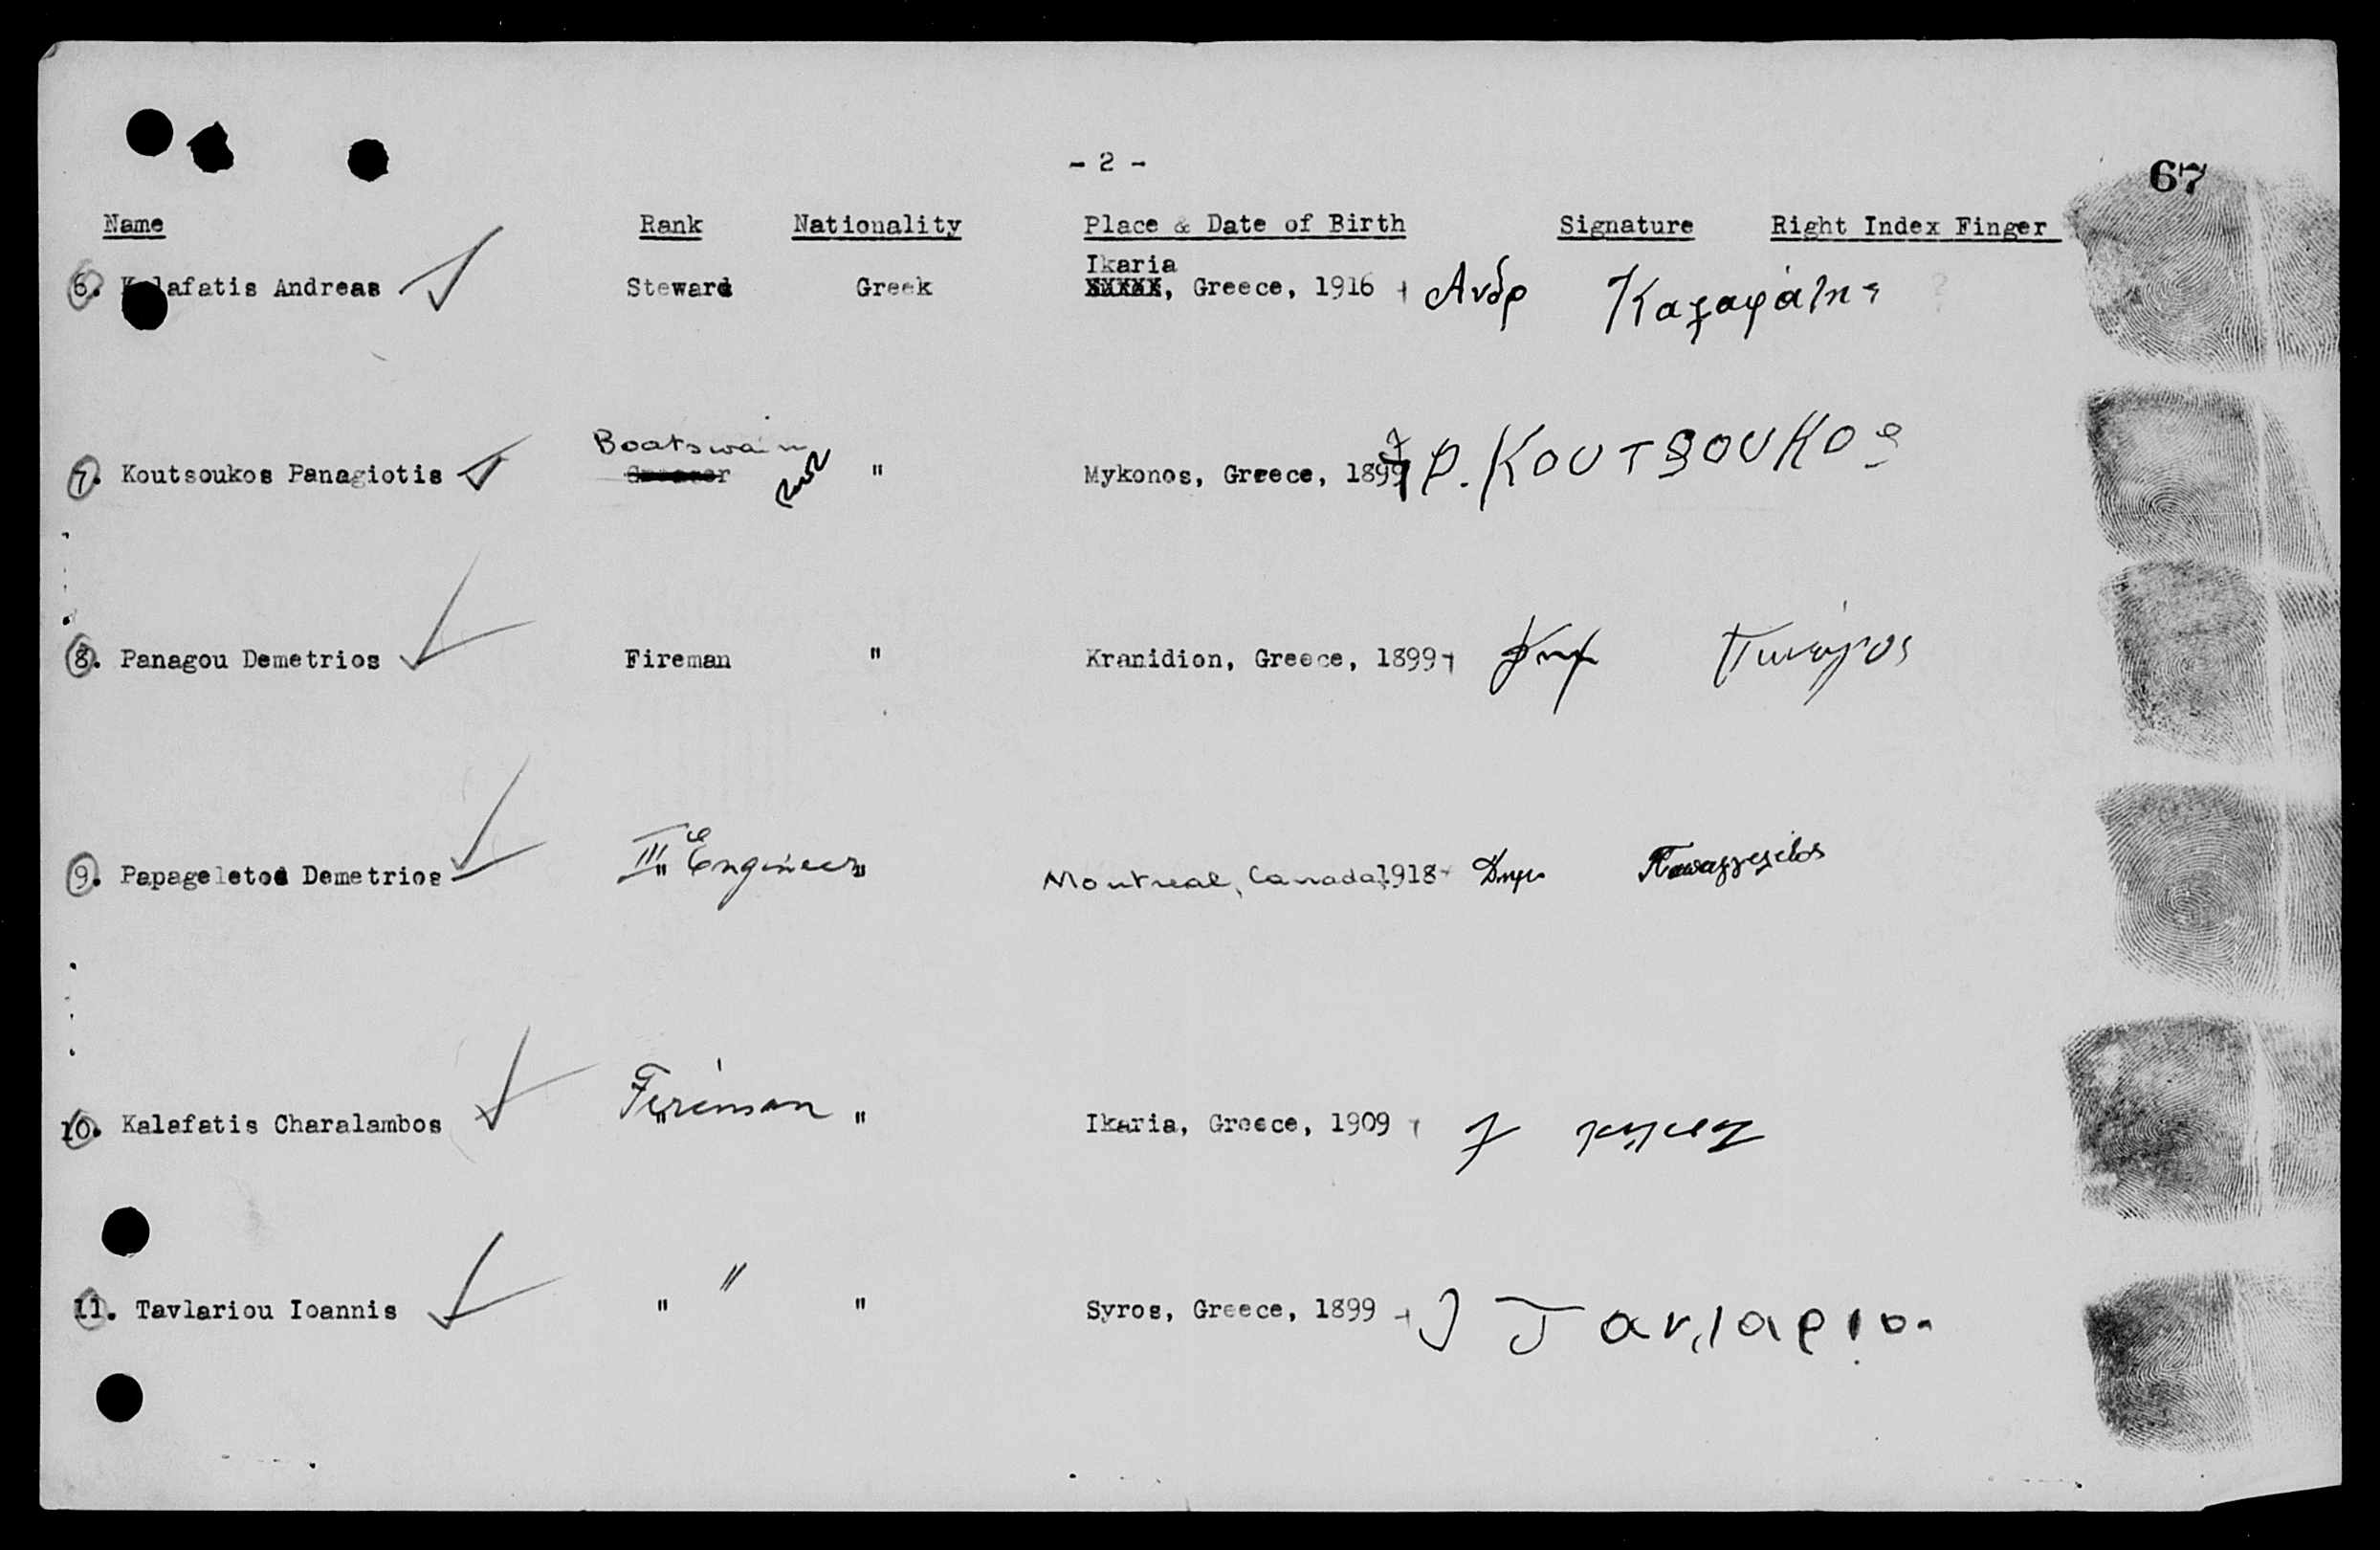 - 2 -
67
Name Rank Nationality Place & Date of Birth Signature Right Index Finger
Ikaria
6. Kalafatis Andreas Steward Greek XXXXX, Greece, 1916 Ανδρ Καλαφάτης
Boatswain
7. Koutsoukos Panagiotis " Mykonos, Greece, 1899 P. KOUTSOUKOS
8. Panagou Demetrios Fireman " Kranidion, Greece, 1899
III Engineer
9. Papageletos Demetrios " " Montreal, Canada, 1918
Fireman
10. Kalafatis Charalambos " " Ikaria, Greece, 1909
"
11. Tavlariou Ioannis " " Syros, Greece, 1899